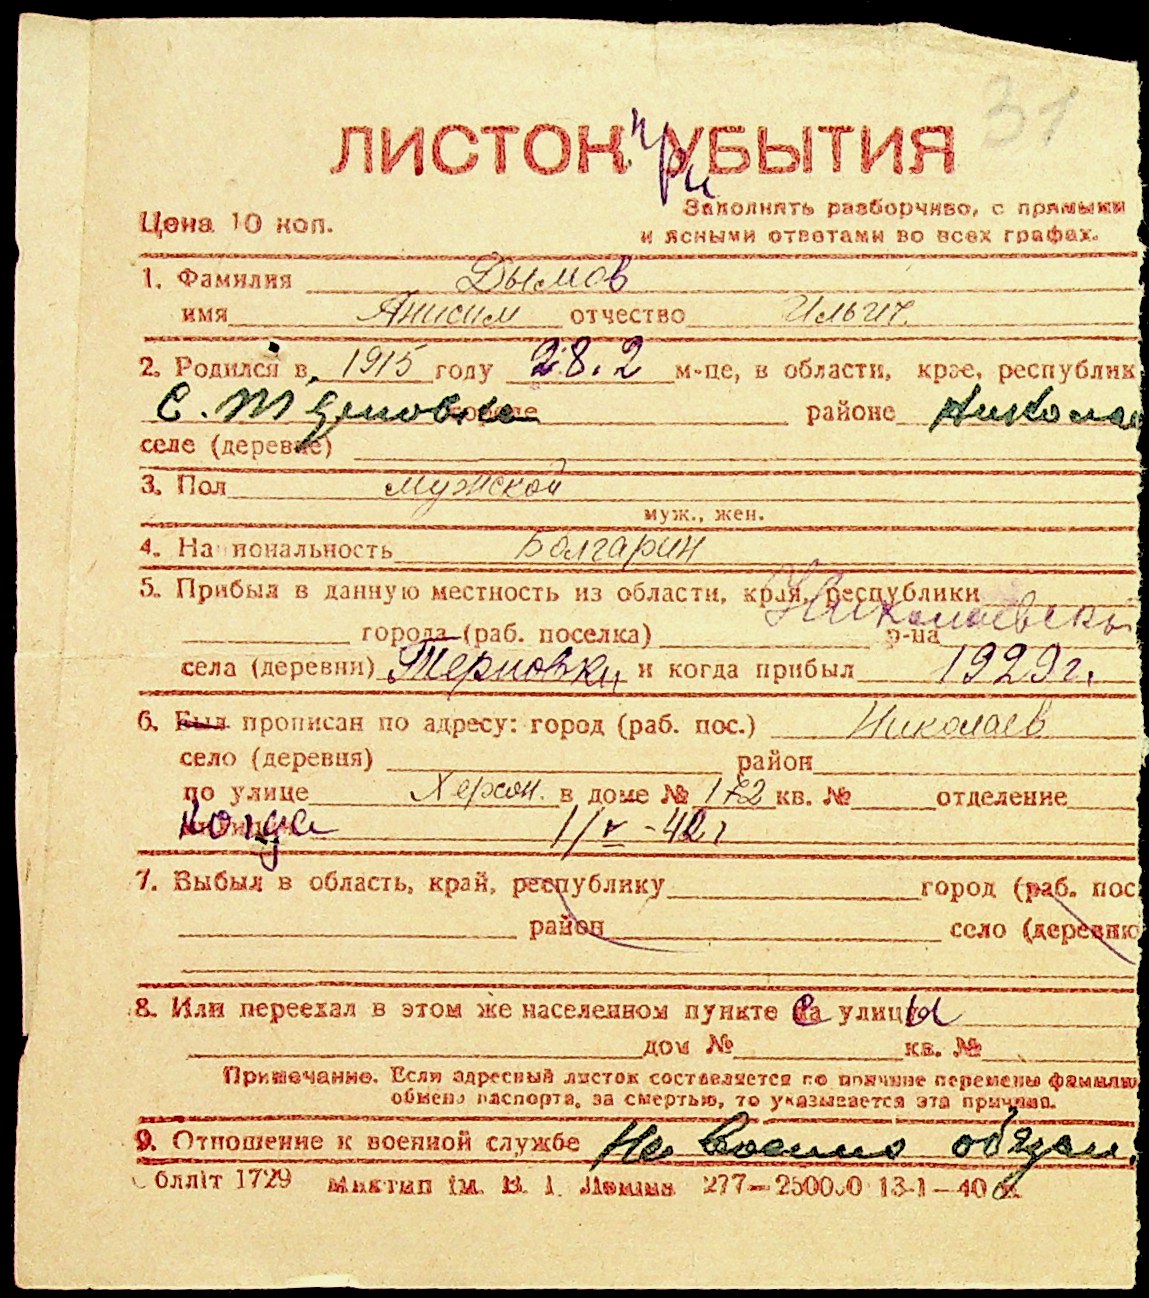 31
ЛИСТОК при УБЫТИЯ
Цена 10 коп.
Заполнять разборчиво, с прямыми
и ясными ответами во всех графах.
1. Фамилия Дымов
имя Анисим отчество Ильич.
2. Родился в 1915 году 28.2 м-це, в области, крае, республик
с. Терновка городе районе Николае
селе (деревне)
3. Пол мужской
муж., жен.
4. Национальность Болгарин
5. Прибыл в данную местность из области, края, республики Николаевск
города (раб. поселка) р-на
села (деревни) Терновки и когда прибыл 1929 г.
6. Был прописан по адресу: город (раб. пос.) Николаев
село (деревня) район
по улице Херсон. в доме № 172 кв. № отделение
когда 1/V-42 г
7. Выбыл в область, край, республику город (раб. пос
район село (деревню
8. Или переехал в этом же населенном пункте са улицы
дом № кв. №
Примечание. Если адресный листок составляется по причине перемены фамилии
обмена паспорта, за смертью, то указывается эта причина.
9. Отношение к военной службе Не военно обязан.
блліт 1729 Миктип ім. В. І. Леніна 277—250000 13-1—40